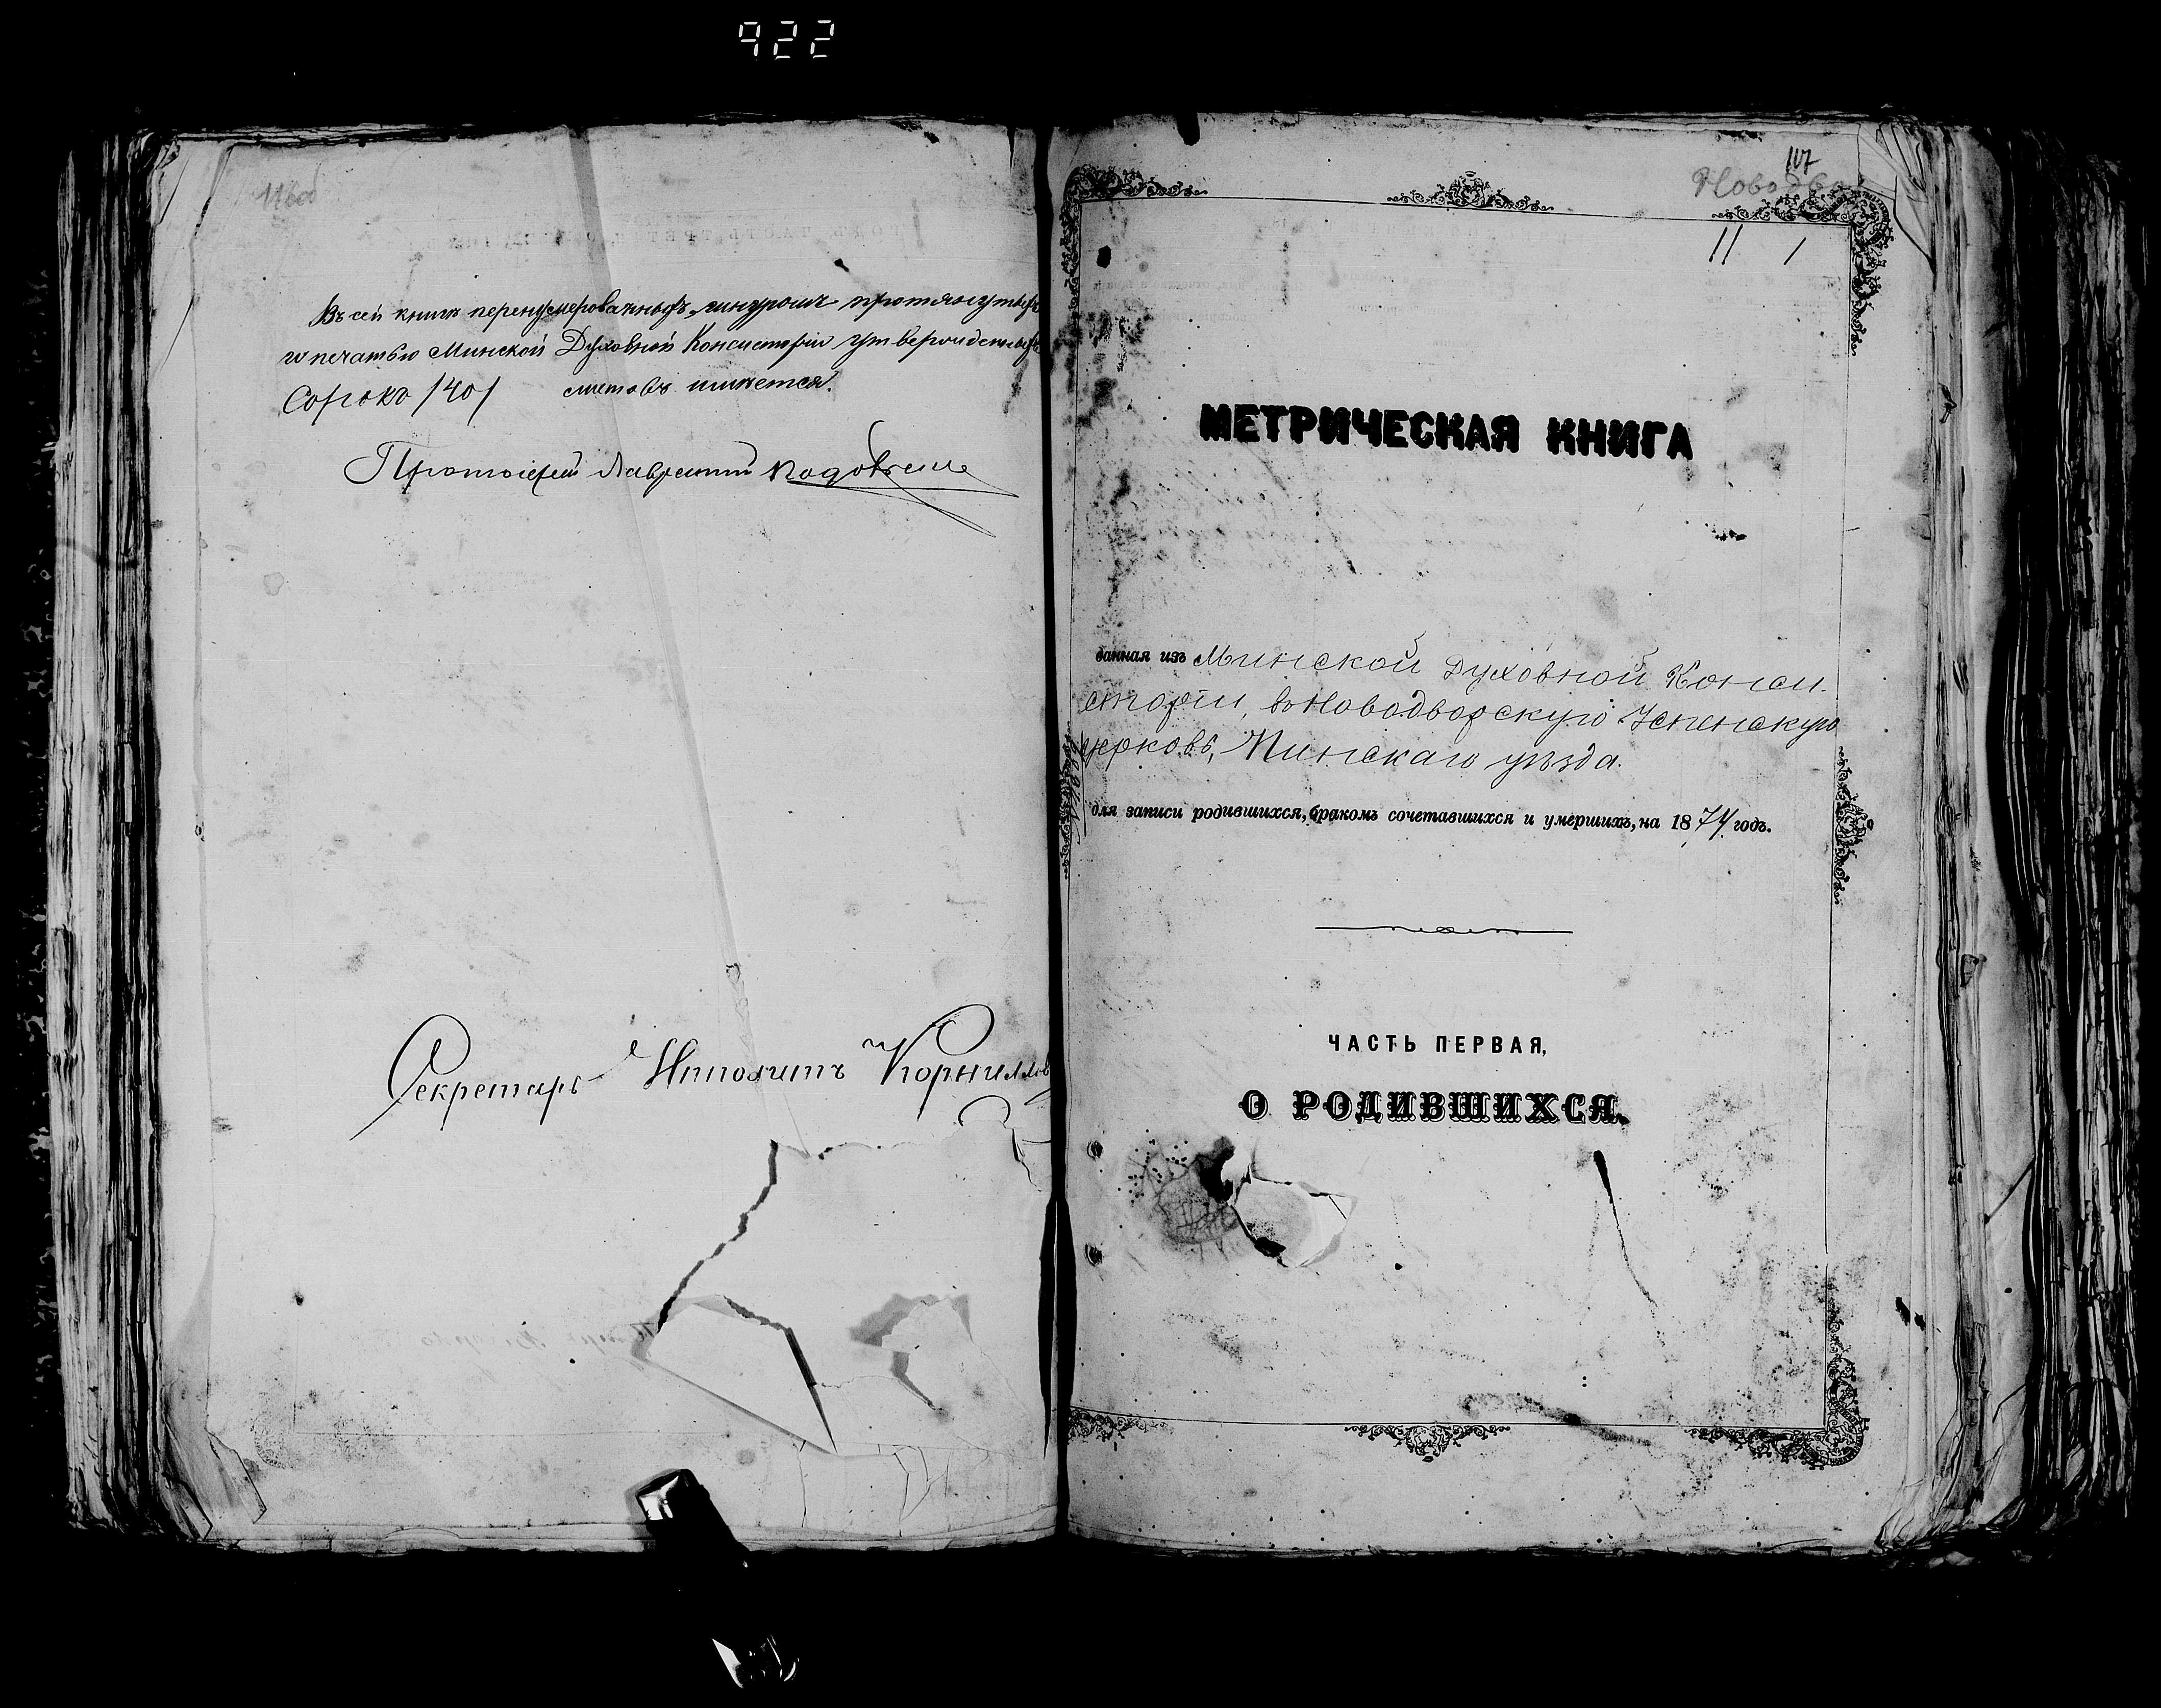 922
Въ сей книгѣ перенумерованныхъ, шнуромъ протянутыхъ
и печатью Минской Духовной Консисторіи утвержденныхъ
Сороко /40/ листовъ имѣется.
Протоіерей Лаврентій
Секретарь Ипполитъ Корниллов
107
Новодвор
11 1
МЕТРИЧЕСКАЯ КНИГА
данная изъ Минской Духовной Конси-
сторіи, въ Новодворскую Успенскую
церковь, Пинскаго уѣзда.
для записи родившихся, бракомъ сочетавшихся и умершихъ, на 1874 годъ.
ЧАСТЬ ПЕРВАЯ,
О РОДИВШИХСЯ.